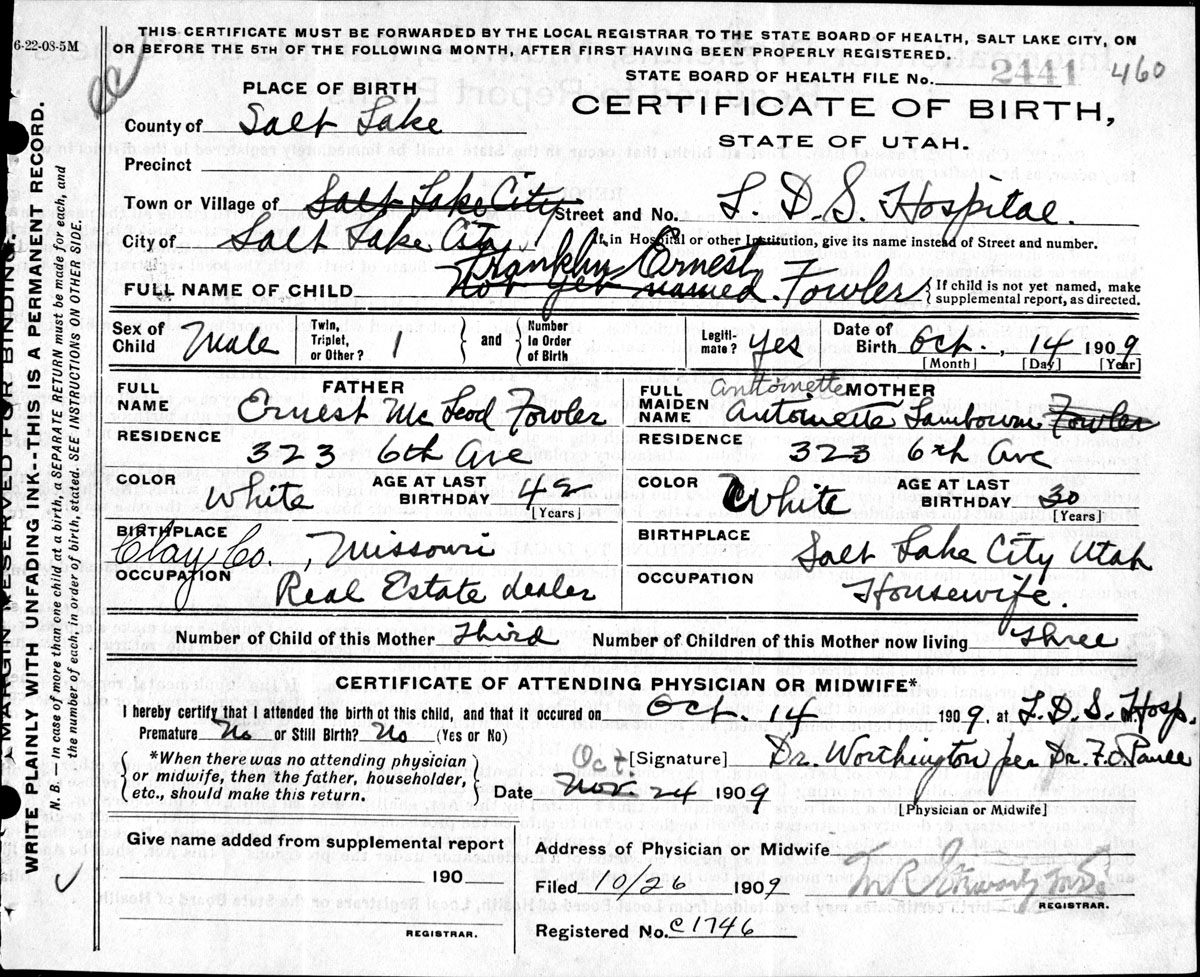 6-22-08-5M
THIS CERTIFICATE MUST BE FORWARDED BY THE LOCAL REGISTRAR TO THE STATE BOARD OF HEALTH, SALT LAKE CITY, ON
OR BEFORE THE 5TH OF THE FOLLOWING MONTH, AFTER FIRST HAVING BEEN PROPERLY REGISTERED.
STATE BOARD OF HEALTH FILE No. 2441 460
PLACE OF BIRTH
CERTIFICATE OF BIRTH,
STATE OF UTAH.
County of Salt Lake
Precinct
Town or Village of Salt Lake City Street and No. L. D. S. Hospital.
City of Salt Lake City If in Hospital or other Institution, give its name instead of Street and number.
Franklin Ernest
FULL NAME OF CHILD Not yet named. Fowler { If child is not yet named, make
supplemental report, as directed.
Sex of Child Male Twin, Triplet, or Other? 1 } and { Number In Order of Birth Legiti- mate? yes Date of Birth Oct., 14 1909
[Month] [Day] [Year]
FATHER
FULL NAME Ernest McLeod Fowler
RESIDENCE
323 6th Ave
COLOR White AGE AT LAST BIRTHDAY 42
[Years]
BIRTHPLACE
Clay Co., Missouri
OCCUPATION Real Estate dealer
MOTHER
Antoinette
FULL MAIDEN NAME Antoinette Lambourne Fowler
RESIDENCE
323 6th Ave
COLOR White AGE AT LAST BIRTHDAY 30
[Years]
BIRTHPLACE
Salt Lake City Utah
OCCUPATION Housewife.
Number of Child of this Mother Third Number of Children of this Mother now living three
CERTIFICATE OF ATTENDING PHYSICIAN OR MIDWIFE*
I hereby certify that I attended the birth of this child, and that it occured on Oct. 14 1909, at L. D. S. Hosp. M.
Premature No or Still Birth? No (Yes or No)
*When there was no attending physician
or midwife, then the father, householder,
etc., should make this return.
[Signature] Dr. Worthington per Dr. F.O.
Oct
Date Nov. 24 1909
[Physician or Midwife]
Give name added from supplemental report
190
REGISTRAR.
Address of Physician or Midwife
Filed 10/26 1909
REGISTRAR.
Registered No. C1746
MARGIN RESERVED FOR BINDING
WRITE PLAINLY WITH UNFADING INK--THIS IS A PERMANENT RECORD.
N. B. — In case of more than one child at a birth, a SEPARATE RETURN must be made for each, and
the number of each, in order of birth, stated. SEE INSTRUCTIONS ON OTHER SIDE.